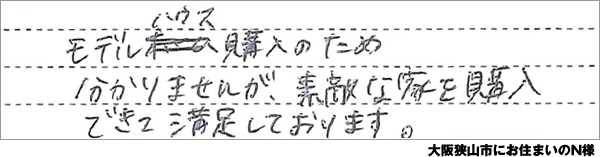 モデルハウス購入のため
分かりませんが、素敵な家を購入
できて満足しております。
大阪狭山市にお住まいのN様